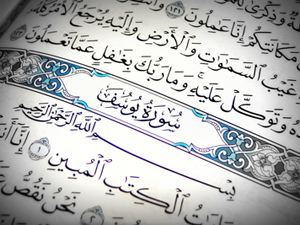 وَذِكْرَىٰ
مَكَانَتِكُمْ إِنَّا عَامِلُونَ
غَيْبُ ٱلسَّمَٰوَٰتِ وَٱلْأَرْضِ وَإِلَيْهِ يُرْجَعُ ٱلْأَمْرُ كُلُّهُ
وَتَوَكَّلْ عَلَيْهِ ۚ وَمَا رَبُّكَ بِغَٰفِلٍ عَمَّا تَعْمَلُونَ
سُورَةُ يُوسُفَ
بِسْمِ ٱللَّهِ ٱلرَّحْمَٰنِ ٱلرَّحِيمِ
ءَايَٰتُ ٱلْكِتَٰبِ ٱلْمُبِينِ ١ إِنَّا
نَحْنُ نَقُصُّ